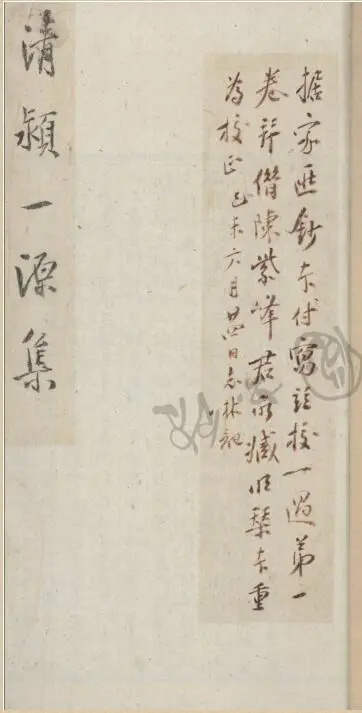 據家藏鈔本付寫並校一過第一
卷諍借陳紫峰君所藏明槧本重
為校正己未六月廿四日志林記
清潁一源集